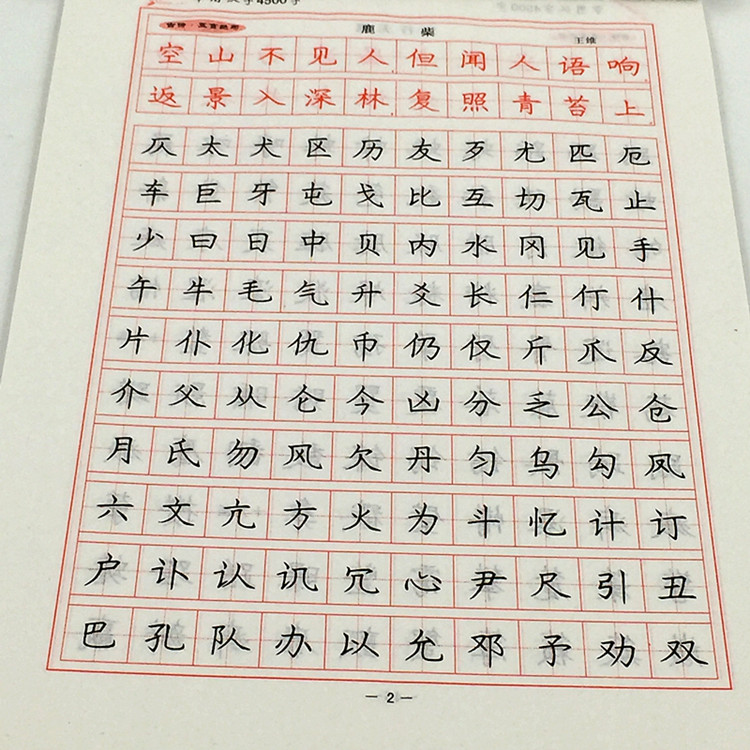 字4500字
古诗·五言绝句 鹿 柴 王维
空山不见人但闻人语响
返景入深林复照青苔上
仄太犬区历友歹尤匹厄
车巨牙屯戈比互切瓦止
少曰日中贝内水冈见手
午牛毛气升爻长仁仃什
片仆化仇币仍仅斤爪反
介父从仑今凶分乏公仓
月氏勿风欠丹匀乌勾凤
六文亢方火为斗忆计订
户讣认讥冗心尹尺引丑
巴孔队办以允邓予劝双
— 2 —